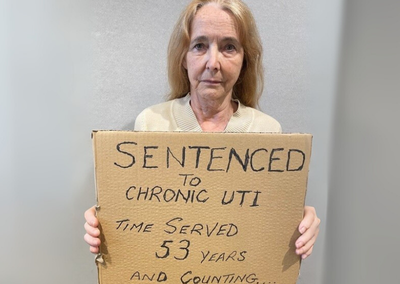 SENTENCED
TO
CHRONIC UTI
TIME SERVED
53 YEARS
AND COUNTING...